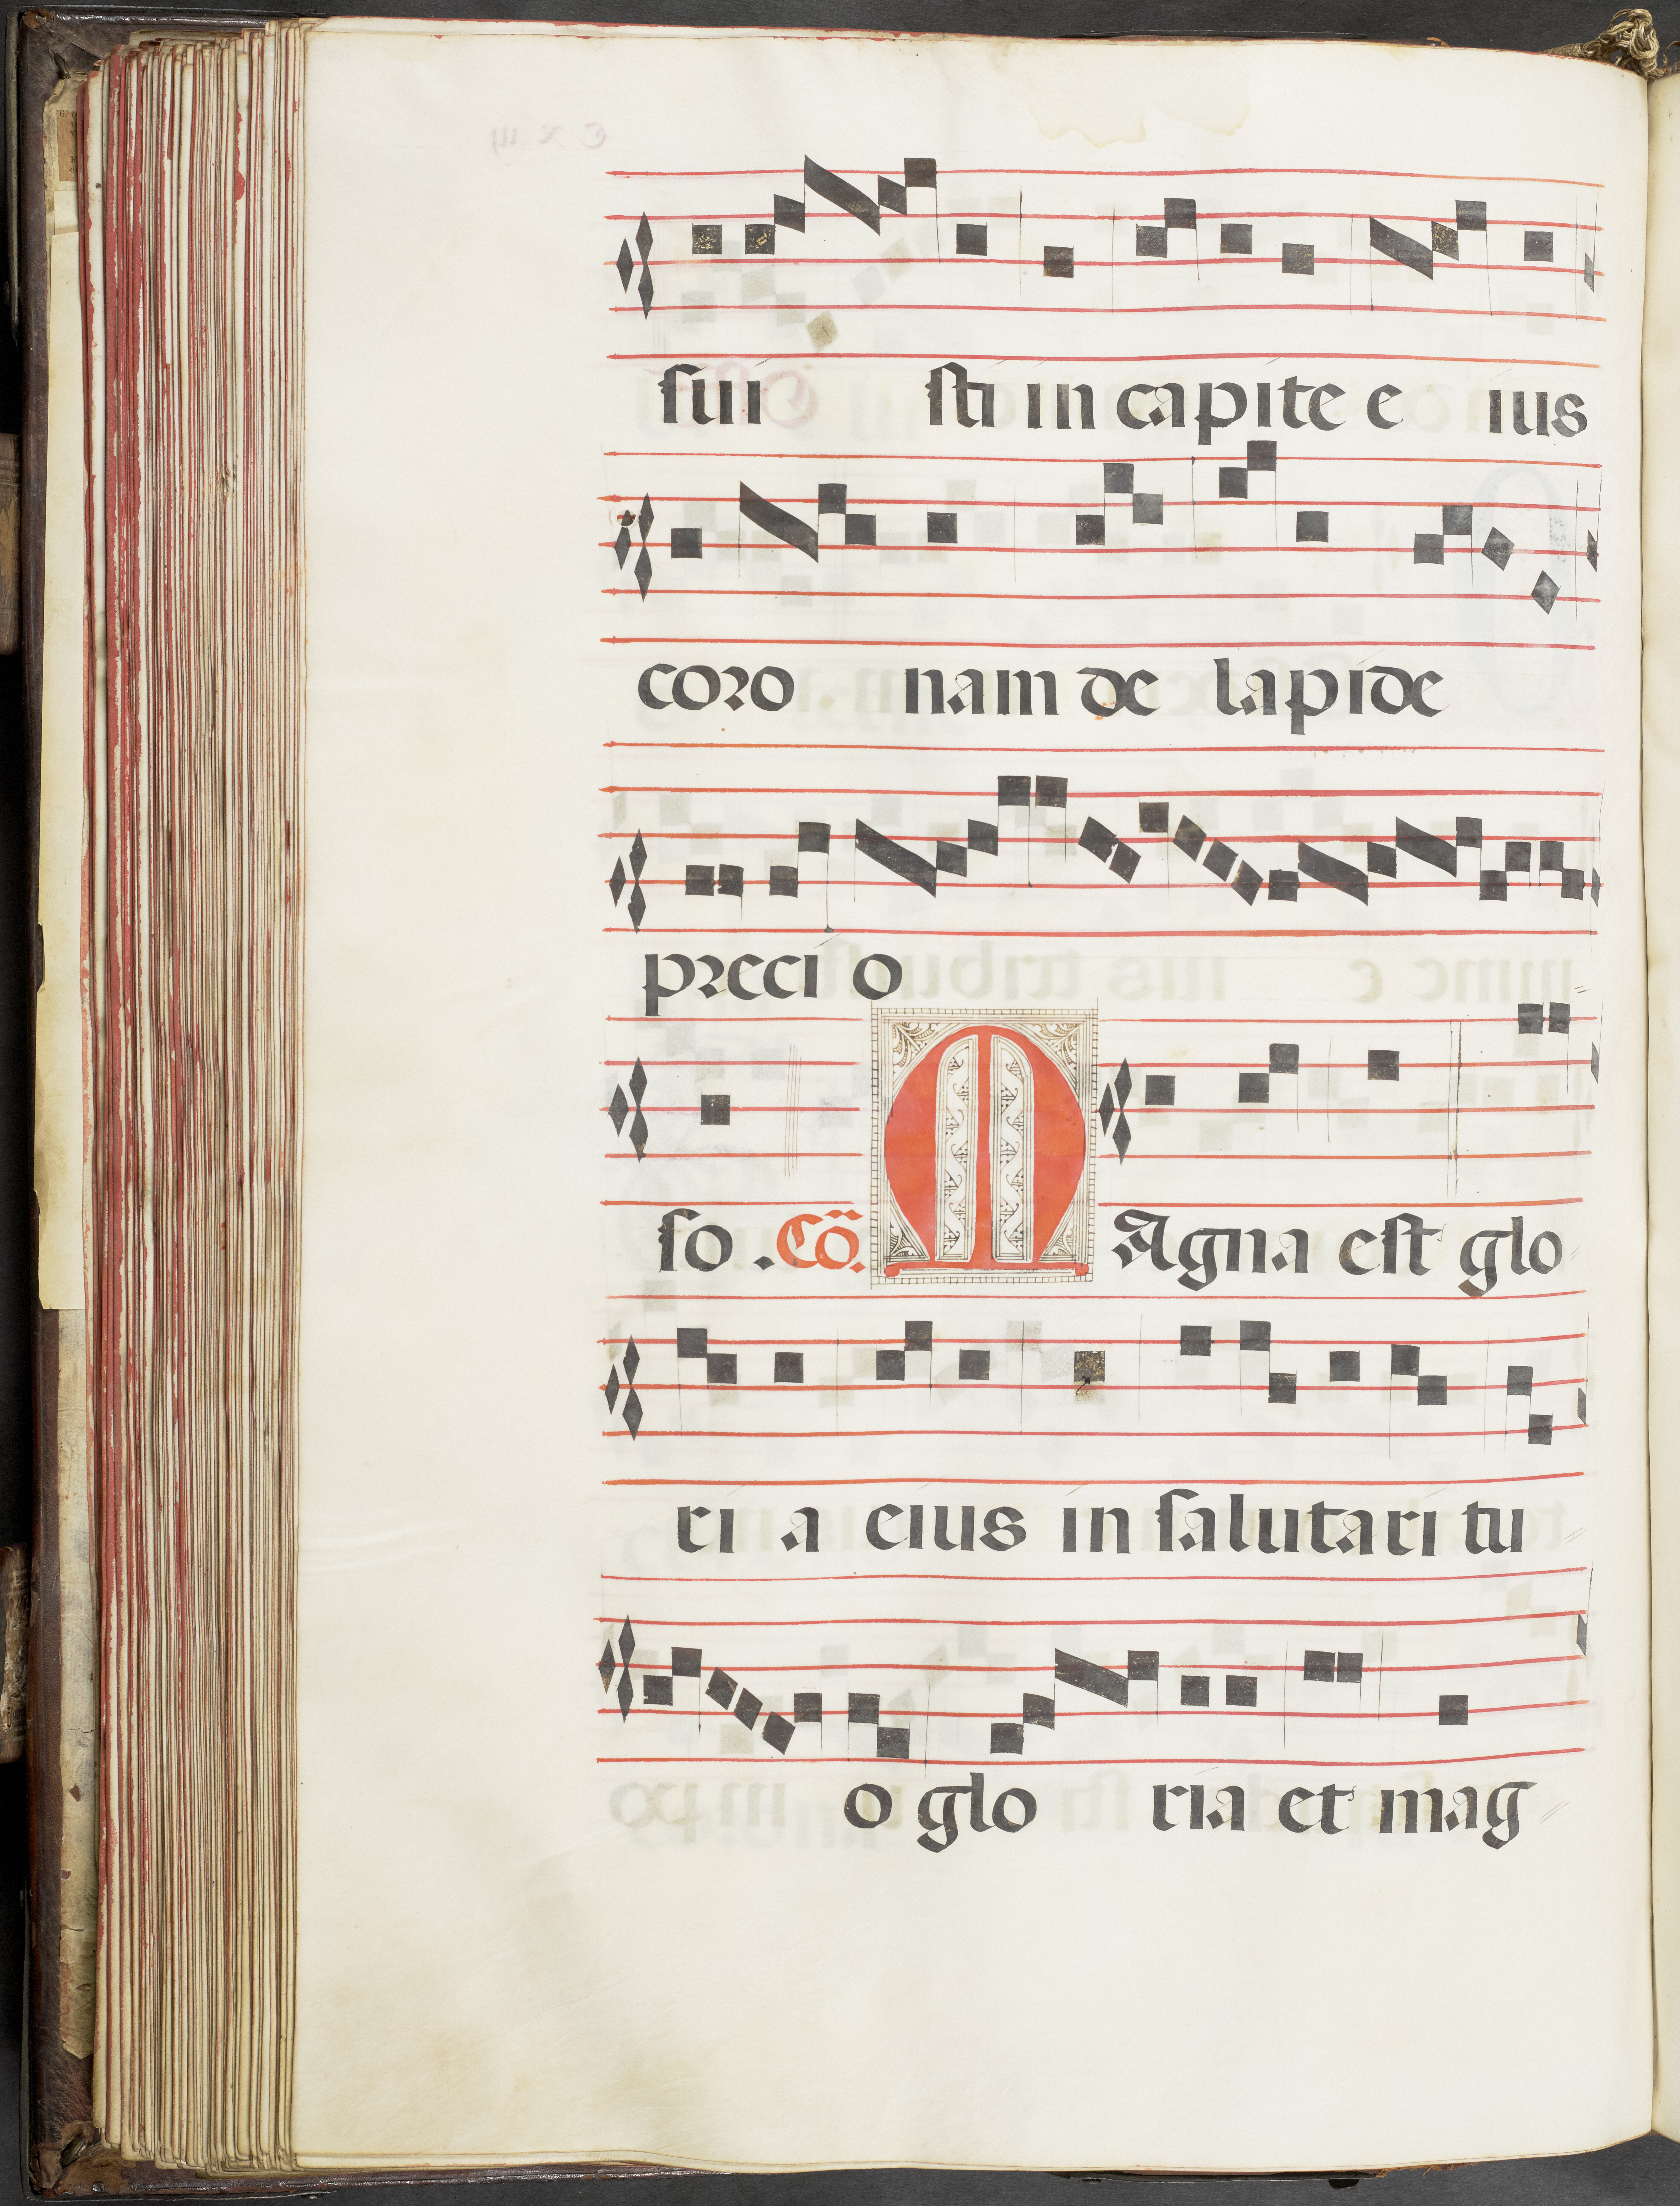 sui sti in capite e ius
coro nam de lapide
preci o
so . Cõ. M Agna est glo
ri a eius in salutari tu
o glo ria et mag